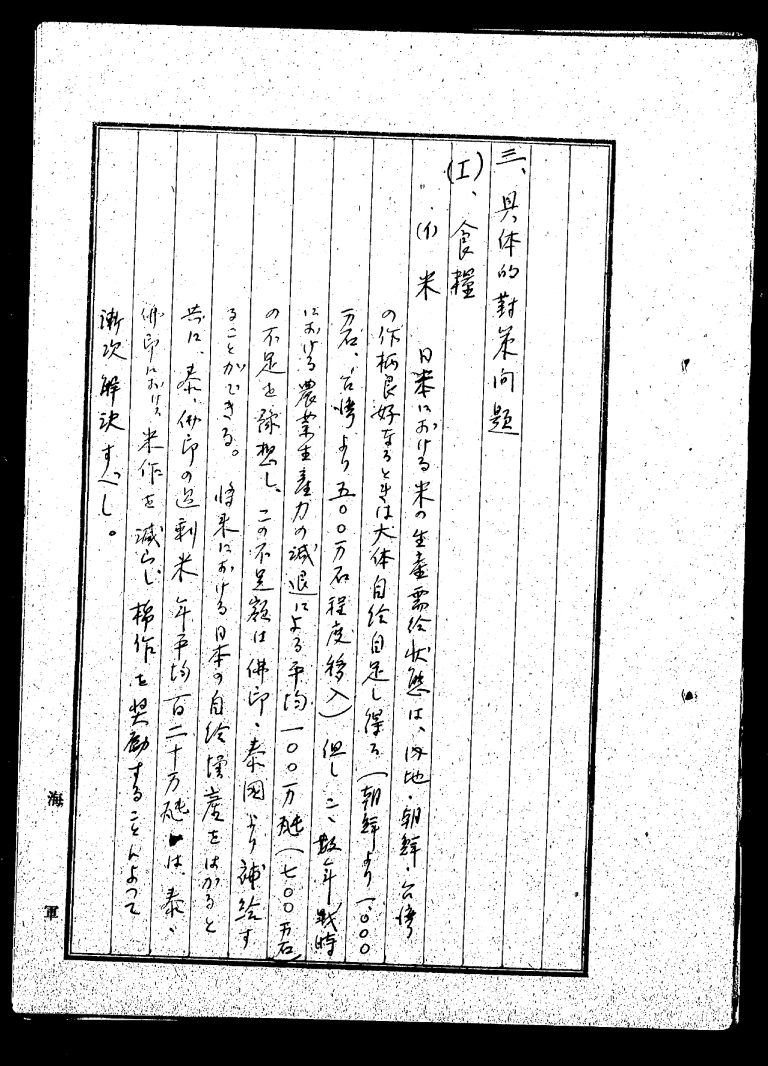 三、具体的對策問題
(I)、食糧
(イ) 米
日本における米の生産需給状態は、内地・朝鮮・台湾
の作柄良好なるときは大体自給自足し得る(朝鮮より一、〇〇〇
万石、台湾より五〇〇万石程度移入)但し二、数年戦時
における農業生産力の減退による平均一〇〇万砘(七〇〇万石)
の不足を予想し、この不足額は佛印・泰國より補給す
ることができる。将来における日本の自給増産をはかると
共に、泰、佛印の過剰米年平均百二十万砘は、泰、
佛印における米作を減らし、棉作を奨励することによつて
漸次解決すべし。
海軍